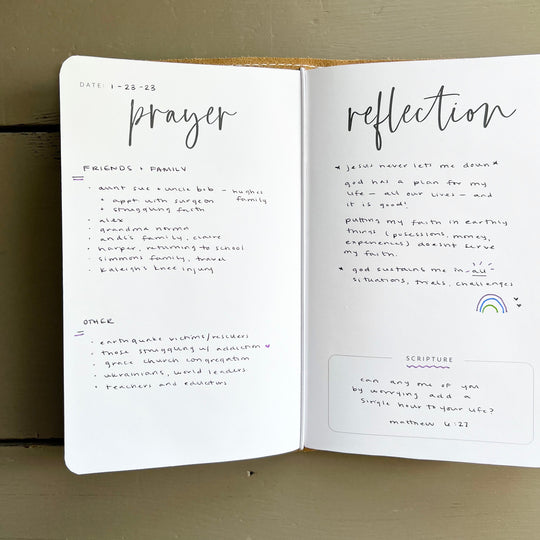 DATE: 1-23-23
prayer
FRIENDS + FAMILY
• aunt sue + uncle bob – hughes family
* appt with surgeon
* struggling faith
• alex
• grandma norma
• andi's family, claire
• harper, returning to school
• simmons family, travel
• kaleigh's knee injury
OTHER
• earthquake victims/rescuers
• those struggling w/ addiction
• grace church congregation
• ukrainians, world leaders
• teachers and educators
reflection
* jesus never lets me down *
god has a plan for my
life – all our lives – and
it is good!
putting my faith in earthly
things (posessions, money,
experiences) doesnt serve
my faith.
* god sustains me in all
situations, trials, challenges
SCRIPTURE
can any one of you
by worrying add a
single hour to your life?
matthew 6:27